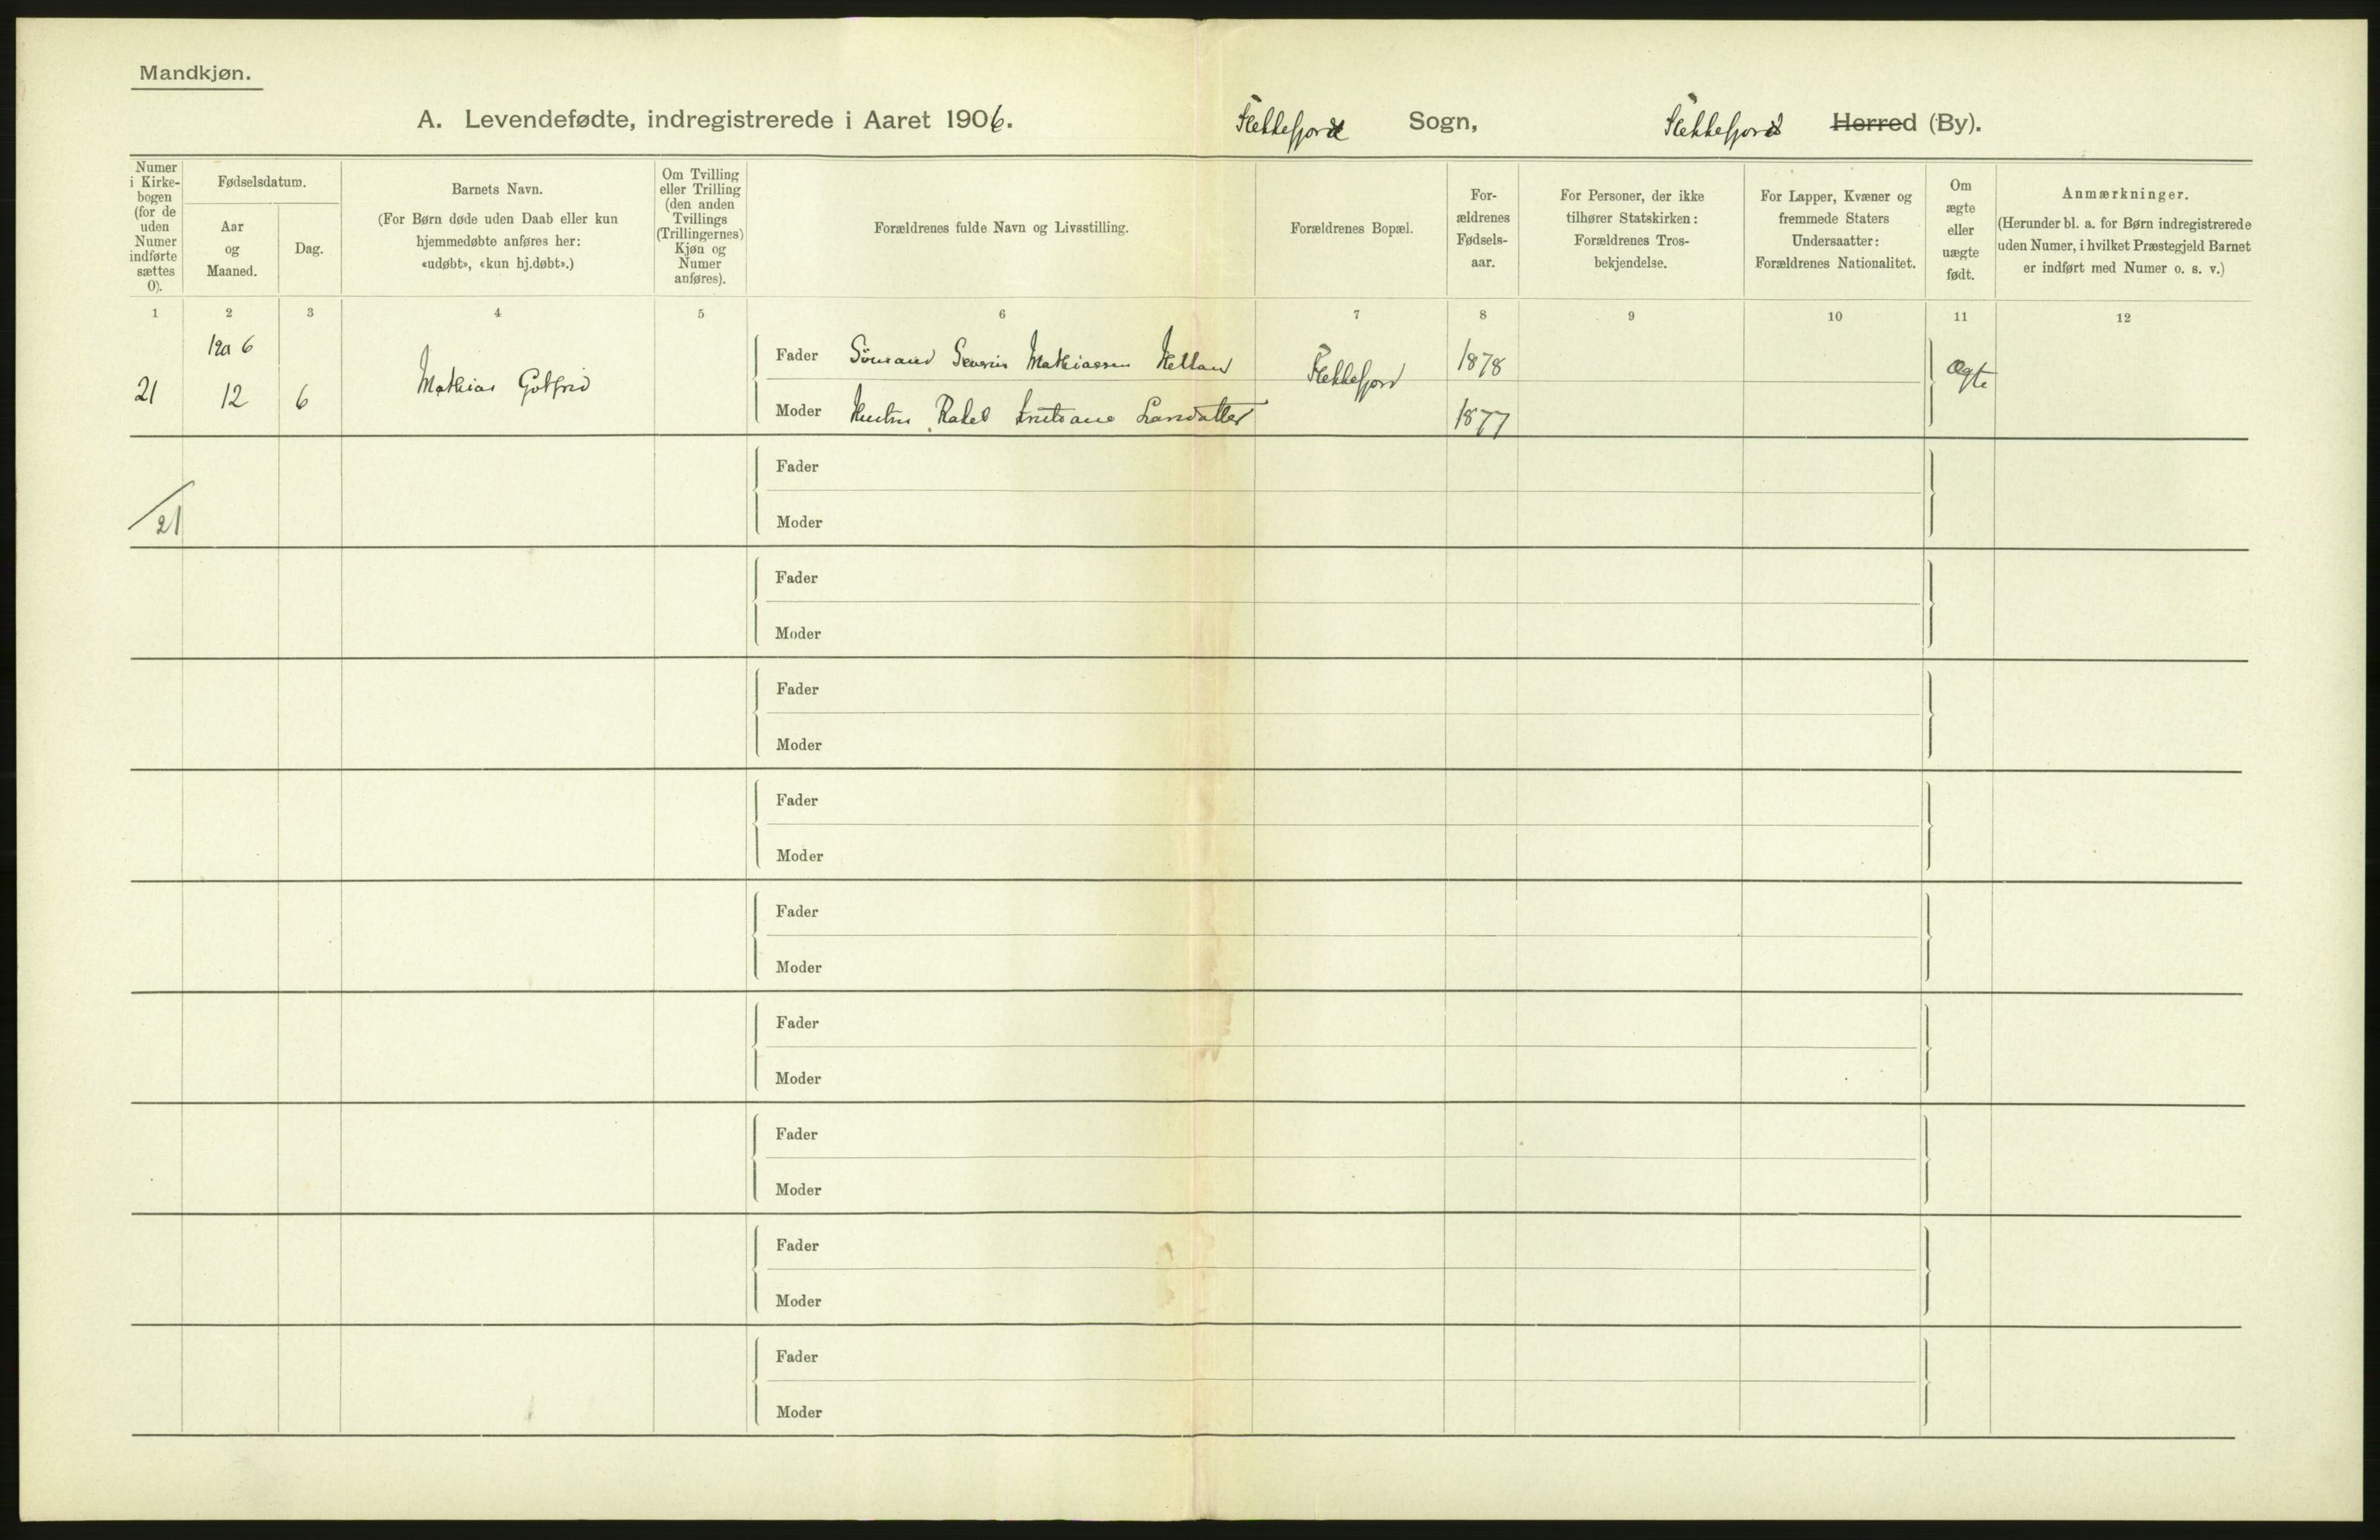 Mandkjøn.
A. Levendefødte, indregistrerede i Aaret 1906. Flekkefjord Sogn, Flekkefjord Herred (By).
Numer i Kirke-bogen (for de uden Numer indførte sættes 0).
Fødselsdatum.
Aar og Maaned.
Dag.
Barnets Navn.
(For Børn døde uden Daab eller kun
hjemmedøbte anføres her:
«udøbt», «kun hj.døbt».)
Om Tvilling
eller Trilling
(den anden
Tvillings
(Trillingernes)
Kjøn og
Numer
anføres).
Forældrenes fulde Navn og Livsstilling.
Forældrenes Bopæl.
For-
ældrenes
Fødsels-
aar.
For Personer, der ikke
tilhører Statskirken:
Forældrenes Tros-
bekjendelse.
For Lapper, Kvæner og
fremmede Staters
Undersaatter:
Forældrenes Nationalitet.
Om
ægte
eller
uægte
født.
Anmærkninger.
(Herunder bl. a. for Børn indregistrerede
uden Numer, i hvilket Præstegjeld Barnet
er indført med Numer o. s. v.)
1 2 3 4 5 6 7 8 9 10 11 12
6
21 12 6 Mathias Gotfrid
Fader Sømand Severin Mathiassen Helland Flekkefjord 1878 Ægte
Moder Hustru Rakel Larsdatter 1877
Fader
21
Moder
Fader
Moder
Fader
Moder
Fader
Moder
Fader
Moder
Fader
Moder
Fader
Moder
Fader
Moder
Fader
Moder